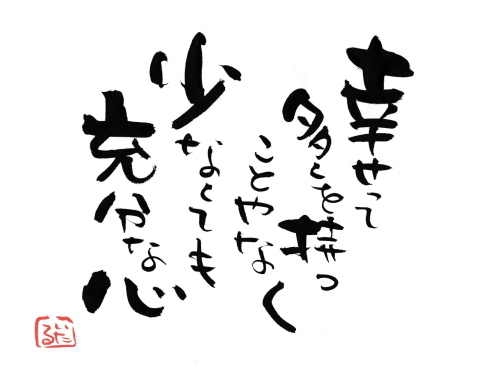 幸せって
多くを持つ
ことやなく
少なくても
充分な心
いた
る